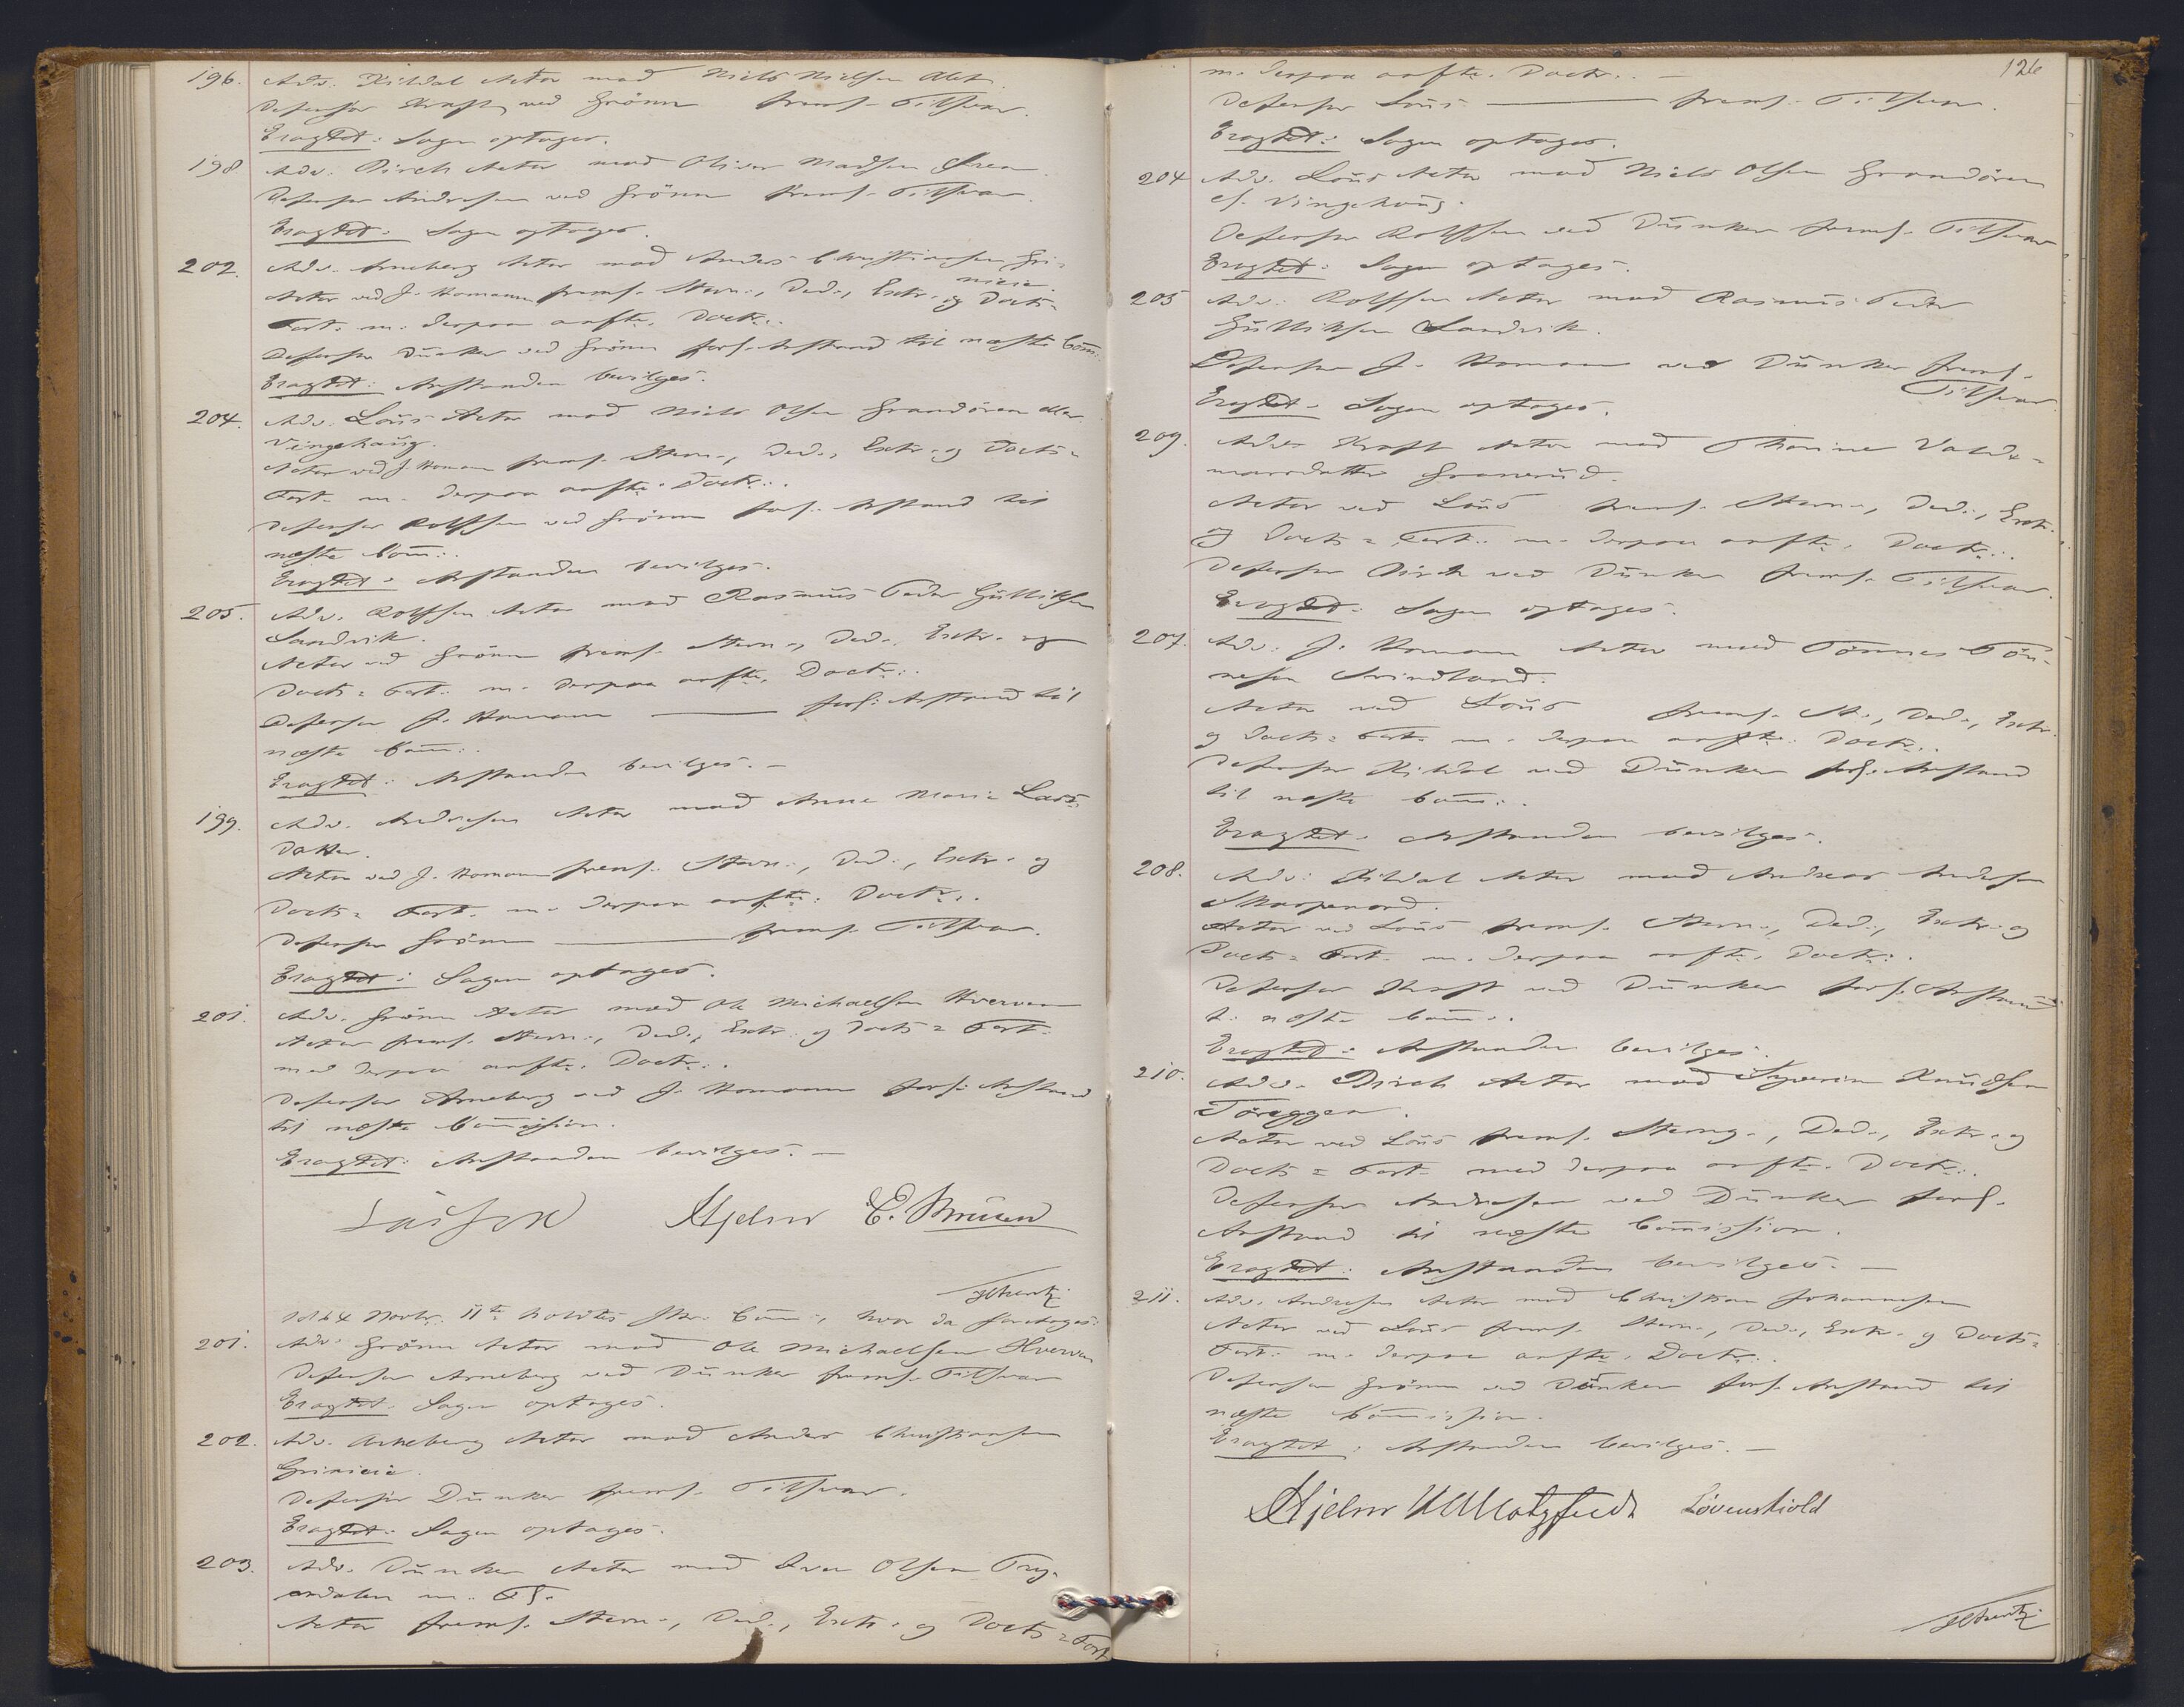 196. Adv. Kildal Actor mod Niels Nielsen Alet
Defensor Kraft ved Grönn frems. Tilsvar.
Eragtet: Sagen optages.
198 Adv. Birch Actor mod Oliver Madsen
Defensor Andresen ved Grönn frems. Tilsvar.
Eragtet: Sagen optages.
202. Adv. Arneberg Actor mod Anders Christiansen Gri-
nieie.
Actor ved J. Homann frems. Stevn:, Ded:, Extr: og Docts=
Fort: m. derpaa aafte. Doctr:.
Defensor Dunker ved Grönn fors. Anstand til næste Comm:
Eragtet: Anstanden bevilges.
204. Adv. Lous Actor mod Niels Olsen Grandören eller
Vingehaug.
Actor ved J. Homann frems. Stevn:, Ded:, Extr: og Docts=
Fort: m. derpaa aafte. Doctr:.
Defensor Rolfsen ved Grönn fors. Anstand til
næste Comm:.
Eragtet: Anstanden bevilges.
205. Adv. Rolfsen Actor mod Rasmus Peder Gulliksen
Sandvik.
Actor ved Grönn frems. Stevn:, Ded:, Extr: og
Docts= Fort: m. derpaa aafte. Doctr:.
Defensor J. Homann ——— fors. Anstand til
næste Comm:.
Eragtet: Anstanden bevilges. —
199. Adv. Andresen Actor mod Anne Marie Lars-
datter.
Actor ved J. Homann frems. Stevn:, Ded:, Extr: og
Docts= Fort: m. derpaa aafte. Doctr:.
Defensor Grönn ——— frems. Tilsvar.
Eragtet: Sagen optages.
201. Adv. Grönn Actor mod Ole Michaelsen Hverven
Actor frems. Stevn:, Ded:, Extr: og Docts= Fort:
med derpaa aafte. Doctr:.
Defensor Arneberg ved J. Homann fors. Anstand
til næste Commission.
Eragtet: Anstanden bevilges. —
Lasson Hjelm E. Bruun
1864 Novbr. 11te holdtes Comm:, hvor da foretoges:
201. Adv. Grönn Actor mod Ole Michaelsen Hverven
Defensor Arneberg ved Dunker frems. Tilsvar
Eragtet: Sagen optages.
202. Adv. Arneberg Actor mod Anders Christiansen
Grinieie.
Defensor Dunker frems. Tilsvar.
Eragtet: Sagen optages.
203. Adv. Dunker Actor mod Iver Olsen Tryg-
m. Fl.
Actor frems. Stevn:, Ded:, Extr: og Docts= Fort
126
m. derpaa aafte. Doctr:. —
Defensor Lous ——— frems. Tilsvar.
Eragtet: Sagen optages.
204 Adv. Lous Actor mod Niels Olsen Grandören
el. Vingehaug.
Defensor Rolfsen ved Dunker frems. Tilsvar
Eragtet: Sagen optages.
205 Adv. Rolfsen Actor mod Rasmus Peder
Gulliksen Sandvik.
Defensor J. Homann ved Dunker frems.
Tilsvar.
Eragtet: Sagen optages.
209. Adv. Kraft Actor mod Thorine Valde-
marsdatter Granerud.
Actor ved Lous frems. Stevn:, Ded:, Extr:
og Docts= Fort: m. derpaa aafte. Doctr:.
Defensor Birch ved Dunker frems. Tilsvar.
Eragtet: Sagen optages.
207. Adv. J. Homann Actor mod Tönnes Tön-
nesen Svindland.
Actor ved Lous frems. St:, Ded:, Extr:
og Docts= Fort: m. derpaa aafte. Doctr:.
Defensor Kildal ved Dunker fors. Anstand
til næste Comm:.
Eragtet: Anstanden bevilges.
208. Adv. Kildal Actor mod Andreas Andersen
Skarpenord.
Actor ved Lous frems. Stevn:, Ded:, Extr: og
Docts= Fort: m. derpaa aafte. Doctr:.
Defensor Kraft ved Dunker fors. Anstand
t. næste Comm:.
Eragtet: Anstanden bevilges.
210. Adv. Birch Actor mod Syverin Knudsen
Töreggen.
Actor ved Lous frems. Stevng:, Ded:, Extr: og
Docts= Fort: med derpaa aafte. Doctr:.
Defensor Andresen ved Dunker fors.
Anstand til næste Commission.
Eragtet: Anstanden bevilges. —
211. Adv. Andresen Actor mod Christian Johannesen
Actor ved Lous frems. Stevn:, Ded:, Extr: og Docts=
Fort: m. derpaa aafte. Doctr:.
Defensor Grönn ved Dunker fors. Anstand til
næste Commission.
Eragtet: Anstanden bevilges. —
Hjelm Motzfeldt Lövenskiold